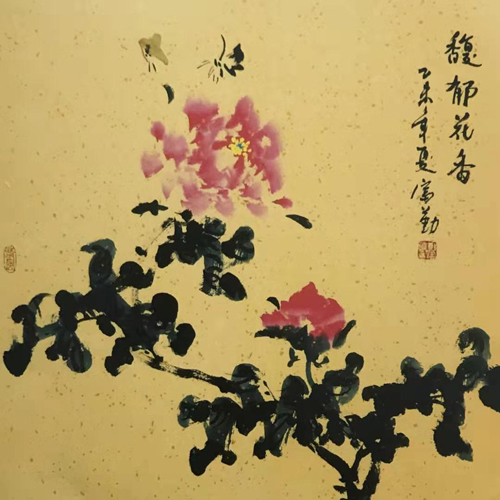 馥郁花香
乙未年夏富勤